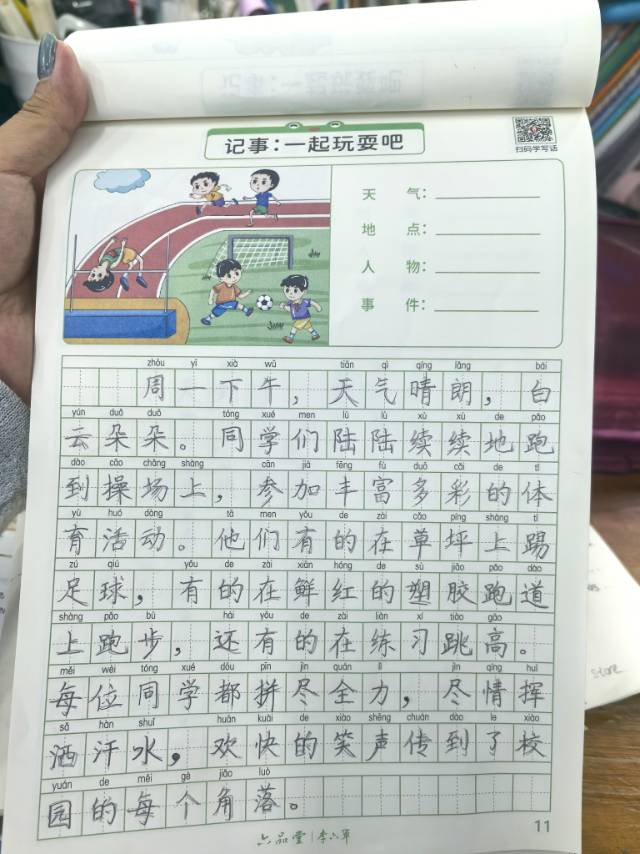 记事：一起玩耍吧
扫码学写话
天 气：
地 点：
人 物：
事 件：
zhōu yī xià wǔ tiān qì qíng lǎng bái
周一下午，天气晴朗，白
yún duǒ duǒ tóng xué men lù lù xù xù de pǎo
云朵朵。同学们陆陆续续地跑
dào cāo chǎng shàng cān jiā fēng fù duō cǎi de tǐ
到操场上，参加丰富多彩的体
yù huó dòng tā men yǒu de zài cǎo píng shàng tī
育活动。他们有的在草坪上踢
zú qiú yǒu de zài xiān hóng de sù jiāo pǎo dào
足球，有的在鲜红的塑胶跑道
shàng pǎo bù hái yǒu de zài liàn xí tiào gāo
上跑步，还有的在练习跳高。
měi wèi tóng xué dōu pīn jìn quán lì jìn qíng huī
每位同学都拼尽全力，尽情挥
sǎ hàn shuǐ huān kuài de xiào shēng chuán dào le xiào
洒汗水，欢快的笑声传到了校
yuán de měi gè jiǎo luò
园的每个角落。
六品堂 李六军
11